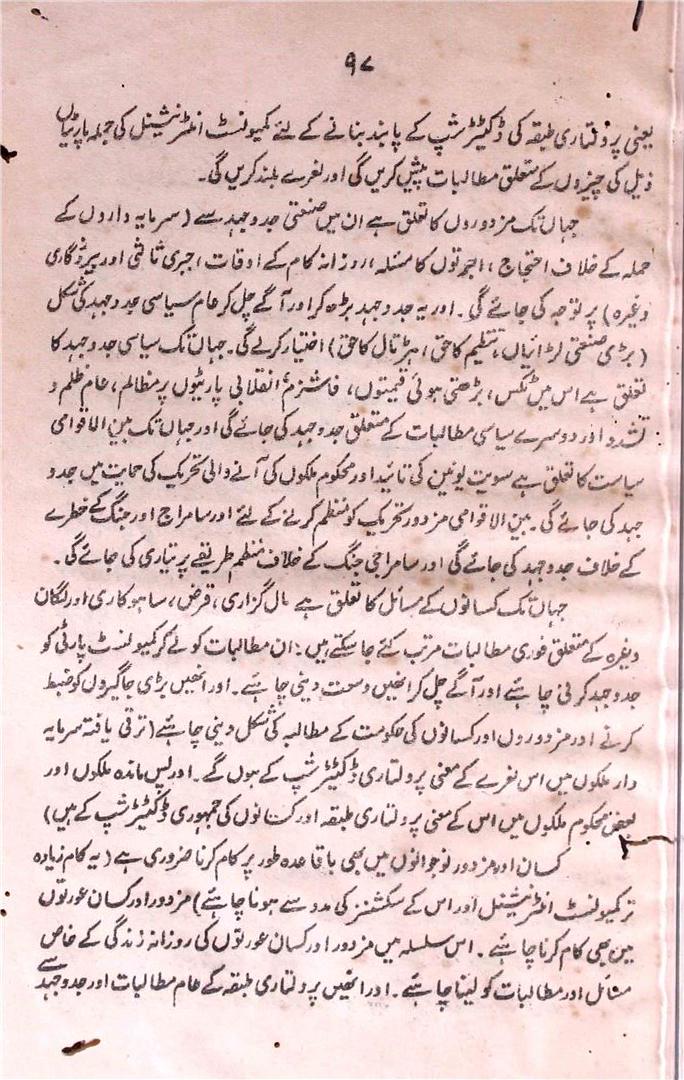 ۹۷
یعنی پرولتاری طبقہ کی ڈکٹیٹر شپ کے پابند بنانے کے لئے کمیونسٹ انٹرنیشنل کی جملہ پارٹیاں
ذیل کی چیزوں کے متعلق مطالبات پیش کریں گی اور نعرے بلند کریں گی۔
جہاں تک مزدوروں کا تعلق ہے ان میں صنعتی جدوجہد سے (سرمایہ داروں کے
حملہ کے خلاف احتجاج، اجرتوں کا مسئلہ، روزانہ کام کے اوقات، جبری ثالثی اور بیروزگاری
وغیرہ) پر توجہ کی جائے گی۔ اور یہ جدوجہد بڑھ کر اور آگے چل کر عام سیاسی جدوجہد کی شکل
(بڑی صنعتی لڑائیاں، تنظیم کا حق، ہڑتال کا حق) اختیار کرلے گی۔ جہاں تک سیاسی جدوجہد کا
تعلق ہے اس میں ٹکس، بڑھتی ہوئی قیمتوں، فاشزم، انقلابی پارٹیوں پر مظالم، عام ظلم و
تشدد اور دوسرے سیاسی مطالبات کے متعلق جدوجہد کی جائے گی اور جہاں تک بین الاقوامی
سیاست کا تعلق ہے سویت یونین کی تائید اور محکوم ملکوں کی آنے والی تحریک کی حمایت میں جدو
جہد کی جائے گی۔ بین الاقوامی مزدور تحریک کو منظم کرنے کے لئے اور سامراج اور جنگ کے خطرے
کے خلاف جدوجہد کی جائے گی اور سامراجی جنگ کے خلاف منظم طریقے پر تیاری کی جائے گی۔
جہاں تک کسانوں کے مسائل کا تعلق ہے مال گزاری، قرض، ساہوکاری اور لگان
وغیرہ کے متعلق فوری مطالبات مرتب کئے جا سکتے ہیں؛ ان مطالبات کو لے کر کمیونسٹ پارٹی کو
جدوجہد کرنی چاہئے اور آگے چل کر انھیں وسعت دینی چاہئے۔ اور انھیں بڑی جاگیروں کو ضبط
کرنے اور مزدوروں اور کسانوں کی حکومت کے مطالبہ کی شکل دینی چاہئے (ترقی یافتہ سرمایہ
دار ملکوں میں اس نعرے کے معنی پرولتاری ڈکٹیٹر شپ کے ہوں گے۔ اور پس ماندہ ملکوں اور
بعض محکوم ملکوں میں اس کے معنی پرولتاری طبقہ اور کسانوں کی جمہوری ڈکٹیٹر شپ کے ہیں)
کسان اور مزدور نوجوانوں میں بھی باقاعدہ طور پر کام کرنا ضروری ہے (یہ کام زیادہ
تر کمیونسٹ انٹرنیشنل اور اس کے سکشنز کی مدد سے ہونا چاہئے) مزدور اور کسان عورتوں
میں بھی کام کرنا چاہئے۔ اس سلسلہ میں مزدور اور کسان عورتوں کی روزانہ زندگی کے خاص
مسائل اور مطالبات کو لینا چاہئے۔ اور انھیں پرولتاری طبقہ کے عام مطالبات اور جدوجہد سے